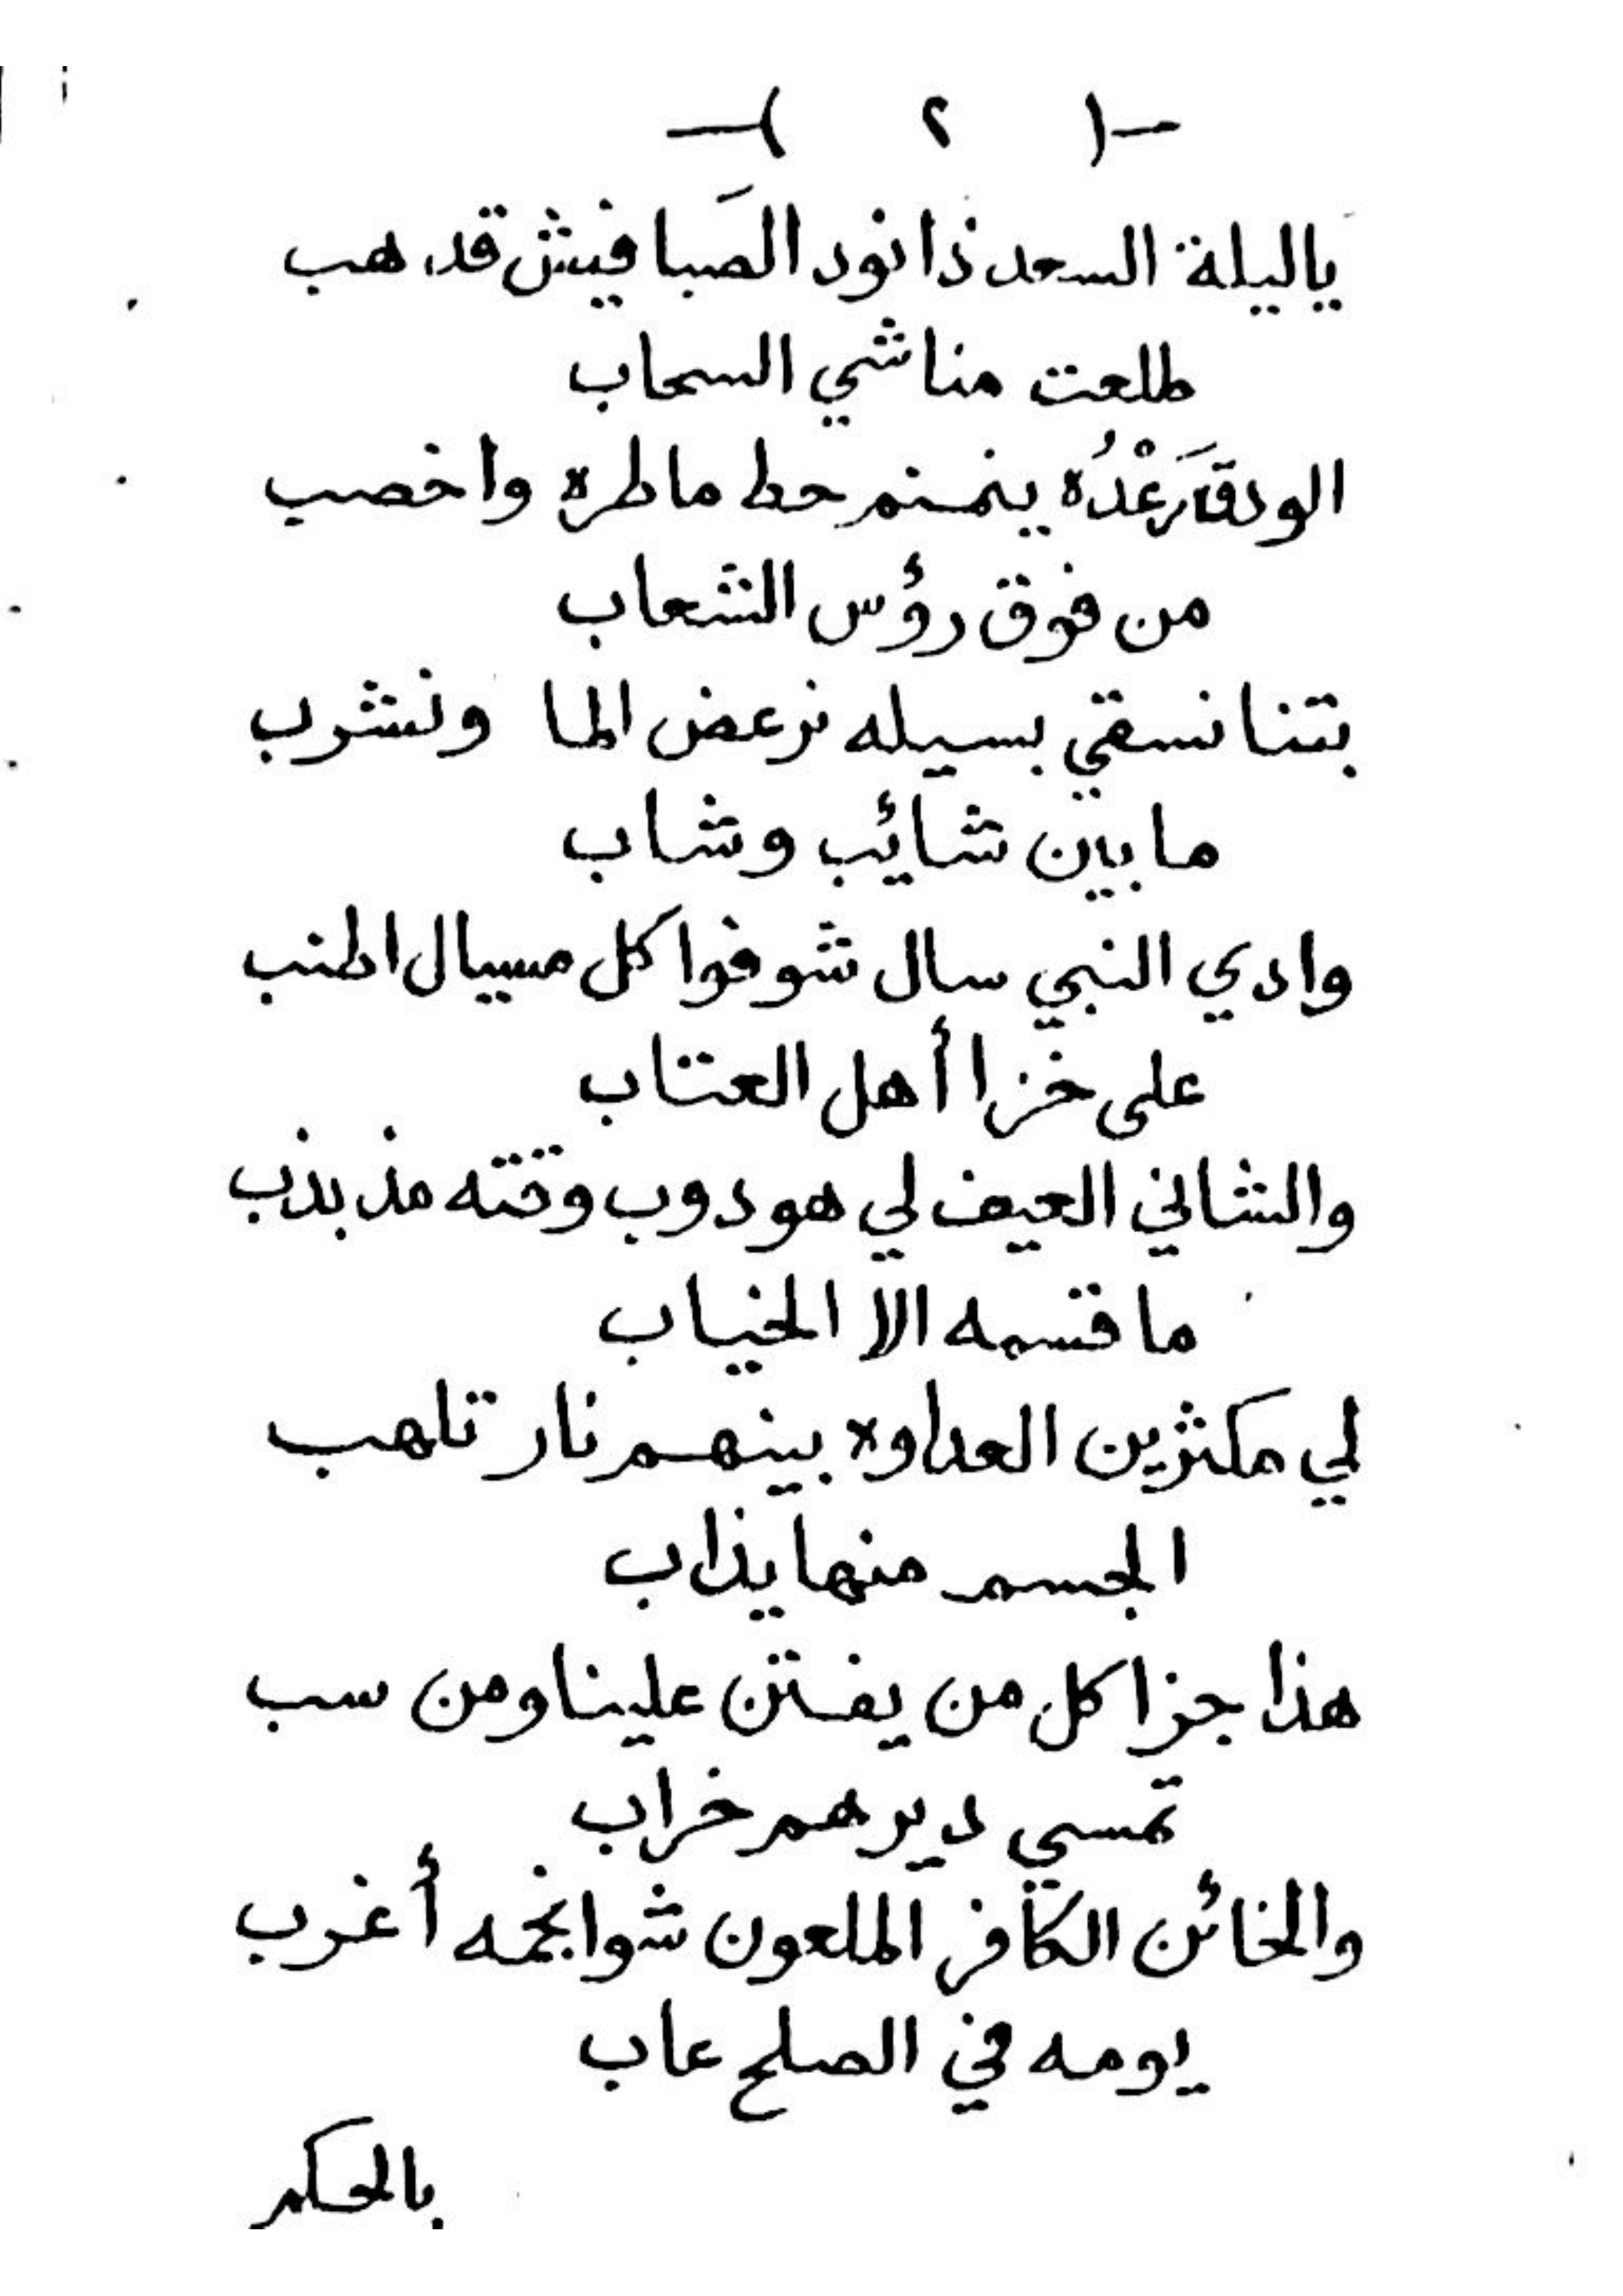 -( ٢ )-
ياليلة السعد ذا نود الصَبا فيش قد هب
طلعت مناشي السحاب
الودق رَعْدُه ينمنم حط ماطره واخصب
من فوق رؤس الشعاب
بتنا نسقي بسيله نرعض الما ونشرب
ما بين شائب وشاب
وادي النبي سال شوفوا كل مسيال اطنب
على خزا أهل العتاب
والشاني العيف لي هو دوب وقته مذبذب
ما قسمه الا الخياب
لي مكثرين العداوه بينهم نار تلهب
الجسم منها يذاب
هذا جزا كل من يفتن علينا ومن سب
تمسي ديرهم خراب
والخائن الكافر الملعون شوا نجمه أغرب
يومه في الصلح عاب
بالحكم